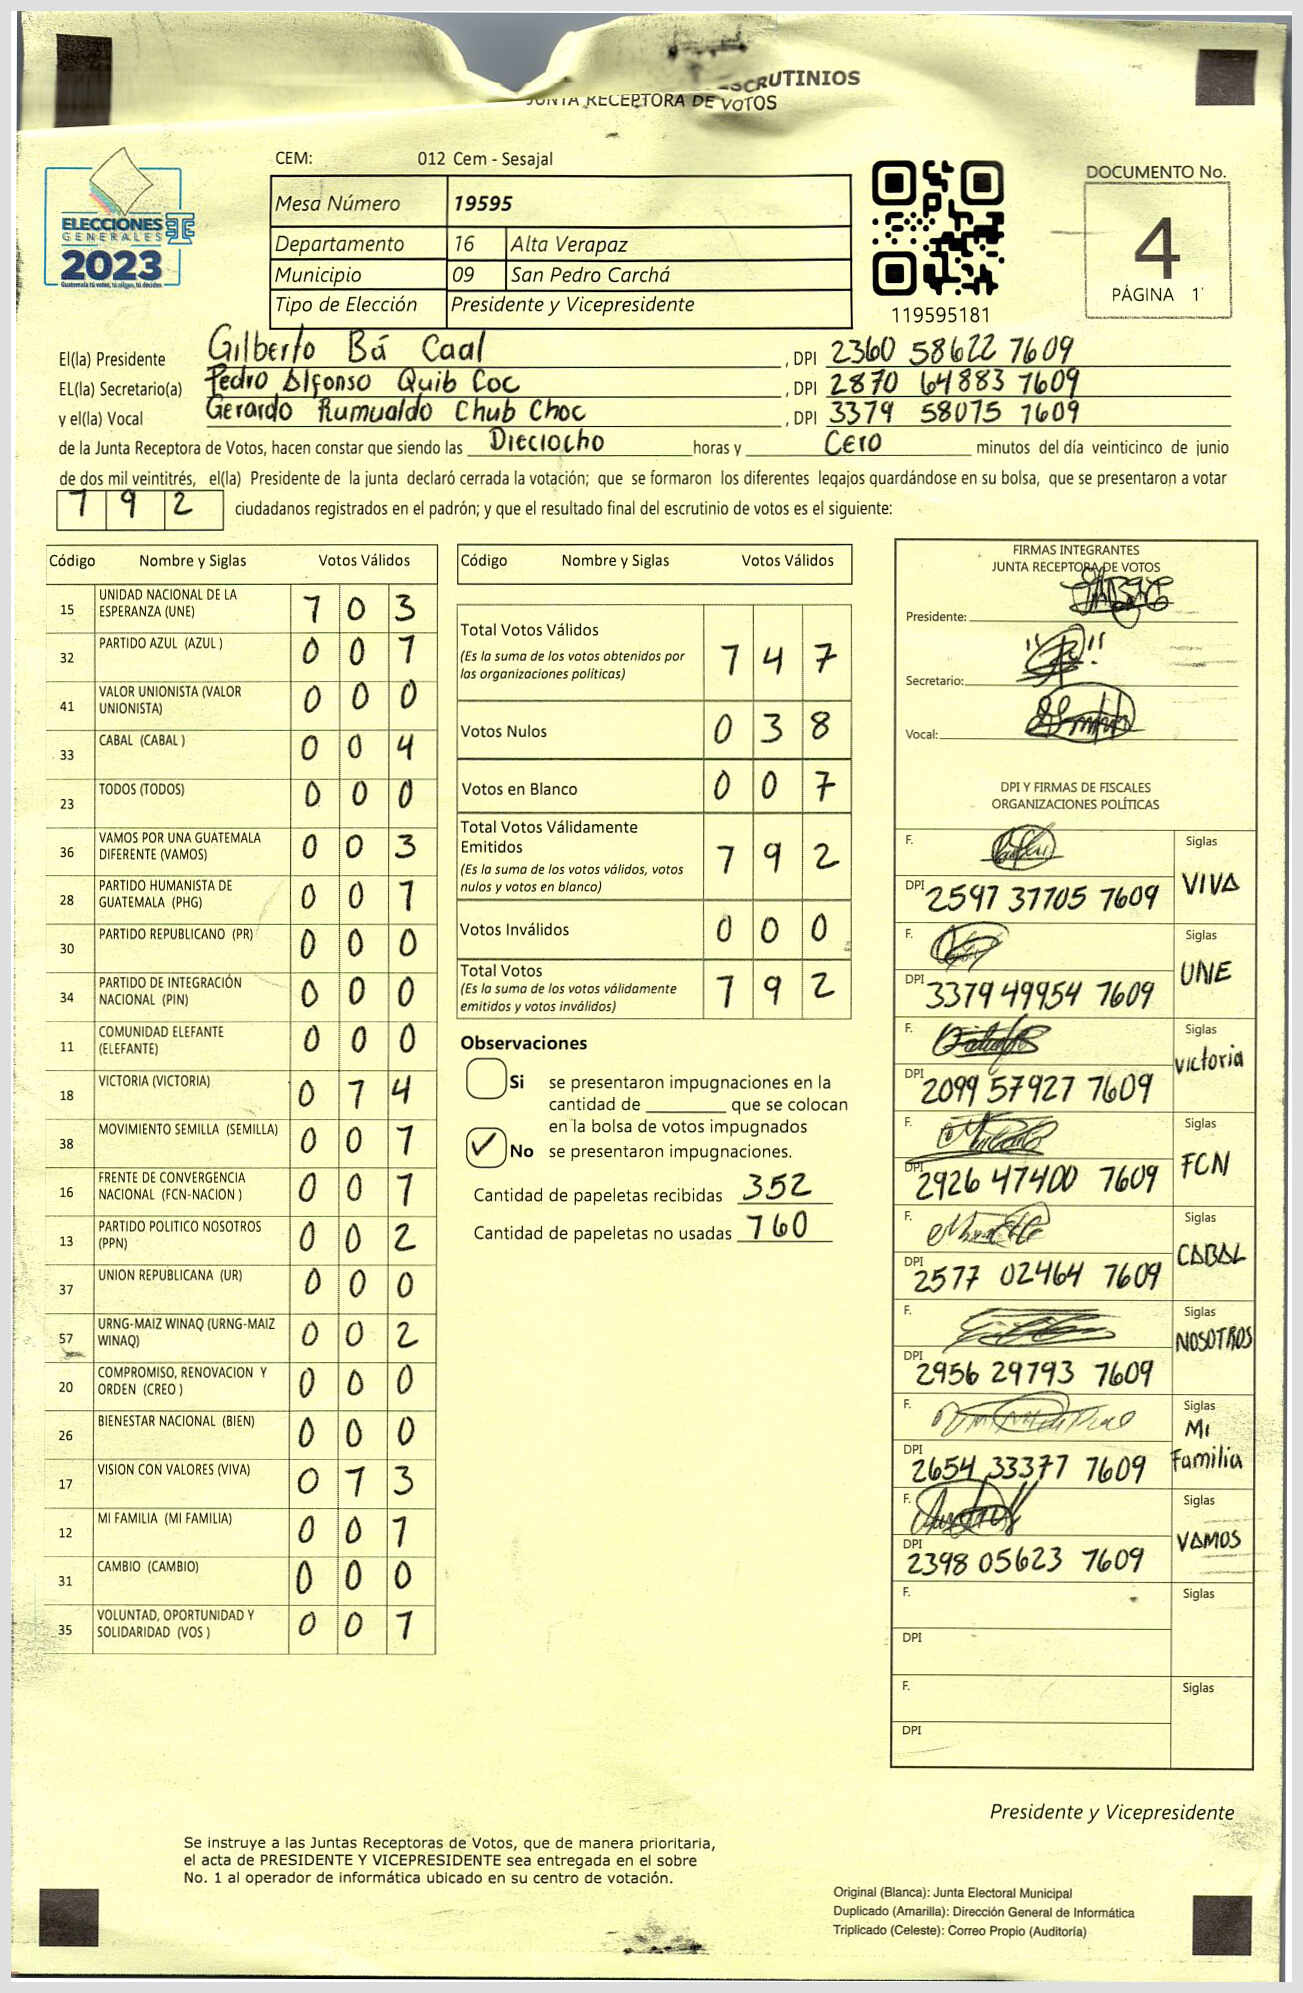 ESCRUTINIOS
JUNTA RECEPTORA DE VOTOS
ELECCIONES
GENERALES
2023
Guatemala tú votas, tú eliges, tú decides
CEM: 012 Cem - Sesajal
Mesa Número 19595
Departamento 16 Alta Verapaz
Municipio 09 San Pedro Carchá
Tipo de Elección Presidente y Vicepresidente
119595181
DOCUMENTO No.
4
PÁGINA 1
El(la) Presidente Gilberto Bá Caal , DPI 2360 58622 1609
EL(la) Secretario(a) Pedro Alfonso Quib Coc , DPI 2870 64883 1609
y el(la) Vocal Gerardo Rumualdo Chub Choc , DPI 3379 58075 1609
de la Junta Receptora de Votos, hacen constar que siendo las Dieciocho horas y Cero minutos del día veinticinco de junio
de dos mil veintitrés, el(la) Presidente de la junta declaró cerrada la votación; que se formaron los diferentes legajos guardándose en su bolsa, que se presentaron a votar
192 ciudadanos registrados en el padrón; y que el resultado final del escrutinio de votos es el siguiente:
Código Nombre y Siglas Votos Válidos
15 UNIDAD NACIONAL DE LA ESPERANZA (UNE) 1 0 3
32 PARTIDO AZUL (AZUL ) 0 0 1
41 VALOR UNIONISTA (VALOR UNIONISTA) 0 0 0
33 CABAL (CABAL ) 0 0 4
23 TODOS (TODOS) 0 0 0
36 VAMOS POR UNA GUATEMALA DIFERENTE (VAMOS) 0 0 3
28 PARTIDO HUMANISTA DE GUATEMALA (PHG) 0 0 1
30 PARTIDO REPUBLICANO (PR) 0 0 0
34 PARTIDO DE INTEGRACIÓN NACIONAL (PIN) 0 0 0
11 COMUNIDAD ELEFANTE (ELEFANTE) 0 0 0
18 VICTORIA (VICTORIA) 0 1 4
38 MOVIMIENTO SEMILLA (SEMILLA) 0 0 1
16 FRENTE DE CONVERGENCIA NACIONAL (FCN-NACION ) 0 0 1
13 PARTIDO POLITICO NOSOTROS (PPN) 0 0 2
37 UNION REPUBLICANA (UR) 0 0 0
57 URNG-MAIZ WINAQ (URNG-MAIZ WINAQ) 0 0 2
20 COMPROMISO, RENOVACION Y ORDEN (CREO ) 0 0 0
26 BIENESTAR NACIONAL (BIEN) 0 0 0
17 VISION CON VALORES (VIVA) 0 1 3
12 MI FAMILIA (MI FAMILIA) 0 0 1
31 CAMBIO (CAMBIO) 0 0 0
35 VOLUNTAD, OPORTUNIDAD Y SOLIDARIDAD (VOS ) 0 0 1
Código Nombre y Siglas Votos Válidos
Total Votos Válidos 1 4 7
(Es la suma de los votos obtenidos por
las organizaciones políticas)
Votos Nulos 0 3 8
Votos en Blanco 0 0 7
Total Votos Válidamente
Emitidos 1 9 2
(Es la suma de los votos válidos, votos
nulos y votos en blanco)
Votos Inválidos 0 0 0
Total Votos 1 9 2
(Es la suma de los votos válidamente
emitidos y votos inválidos)
Observaciones
Si se presentaron impugnaciones en la
cantidad de ________ que se colocan
en la bolsa de votos impugnados
✓ No se presentaron impugnaciones.
Cantidad de papeletas recibidas 352
Cantidad de papeletas no usadas 160
FIRMAS INTEGRANTES
JUNTA RECEPTORA DE VOTOS
Presidente:
Secretario:
Vocal:
DPI Y FIRMAS DE FISCALES
ORGANIZACIONES POLÍTICAS
F. Siglas VIVA
DPI 2597 37705 1609
F. Siglas UNE
DPI 3379 49954 1609
F. Siglas Victoria
DPI 2099 57927 1609
F. Siglas FCN
DPI 2926 47400 1609
F. Siglas CABAL
DPI 2577 02464 1609
F. Siglas NOSOTROS
DPI 2956 29793 1609
F. Siglas Mi Familia
DPI 2654 33377 1609
F. Siglas VAMOS
DPI 2398 05623 1609
F. Siglas
DPI
F. Siglas
DPI
Presidente y Vicepresidente
Se instruye a las Juntas Receptoras de Votos, que de manera prioritaria,
el acta de PRESIDENTE Y VICEPRESIDENTE sea entregada en el sobre
No. 1 al operador de informática ubicado en su centro de votación.
Original (Blanca): Junta Electoral Municipal
Duplicado (Amarilla): Dirección General de Informática
Triplicado (Celeste): Correo Propio (Auditoría)